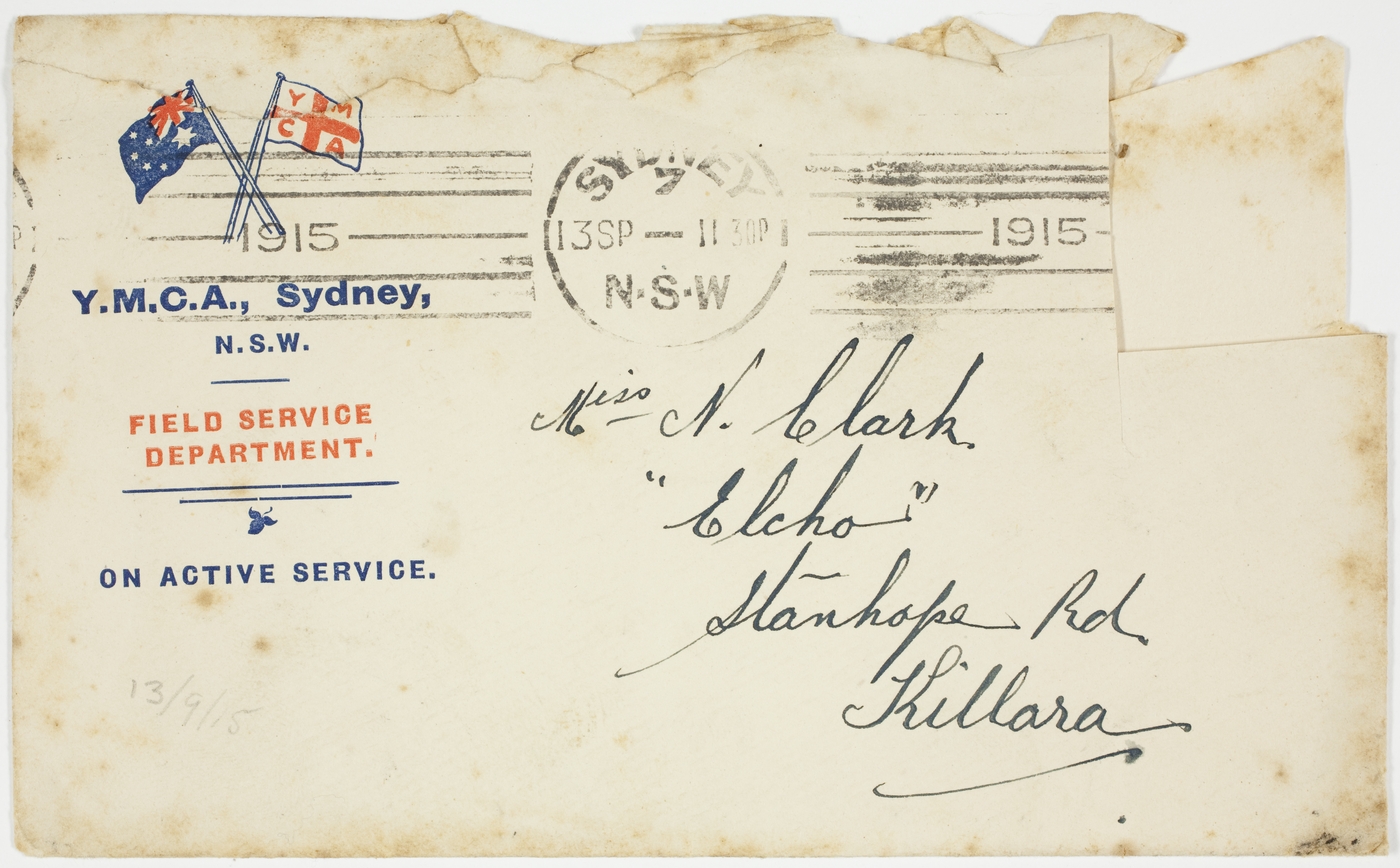 Y M
C A
SYDNEY
1915
13SP — 11 30P
1915
N.S.W
Y.M.C.A., Sydney,
N.S.W.
FIELD SERVICE
DEPARTMENT.
ON ACTIVE SERVICE.
Miss N. Clark.
"Elcho"
Stanhope Rd.
Killara
13/9/15